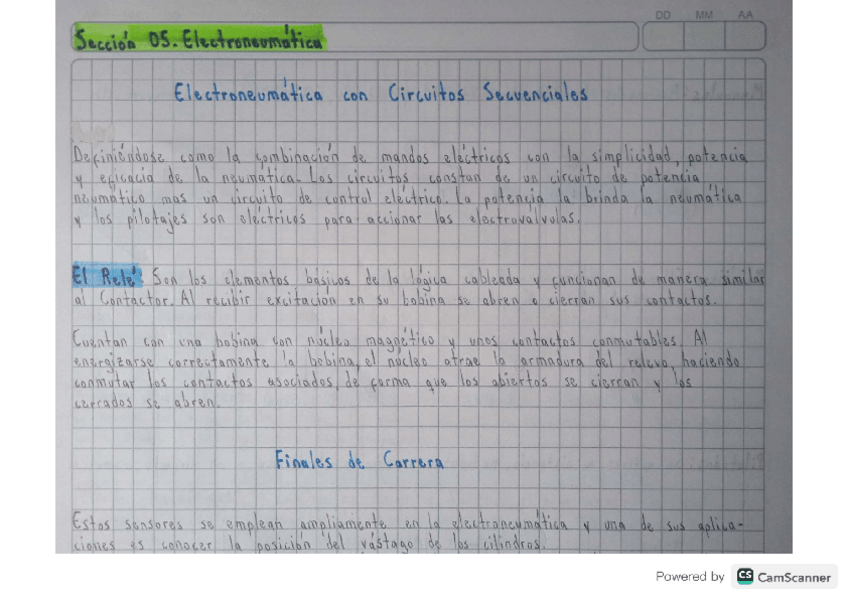 DD MM AA
Sección 05. Electroneumática
Electroneumática con Circuitos Secuenciales
Definiéndose como la combinación de mandos eléctricos con la simplicidad, potencia
y eficacia de la neumática. Los circuitos constan de un circuito de potencia
neumático mas un circuito de control eléctrico. La potencia la brinda la neumática
y los pilotajes son eléctricos para accionar las electroválvulas.
El Relé: Son los elementos básicos de la lógica cableada y funcionan de manera similar
al Contactor. Al recibir excitación en su bobina se abren o cierran sus contactos.
Cuentan con una bobina con núcleo magnético y unos contactos conmutables. Al
energizarse correctamente la bobina, el núcleo atrae la armadura del relevo, haciendo
conmutar los contactos asociados, de forma que los abiertos se cierran y los
cerrados se abren.
Finales de Carrera
Estos sensores se emplean ampliamente en la electroneumática y una de sus aplica-
ciones es conocer la posición del vástago de los cilindros.
Powered by CS CamScanner